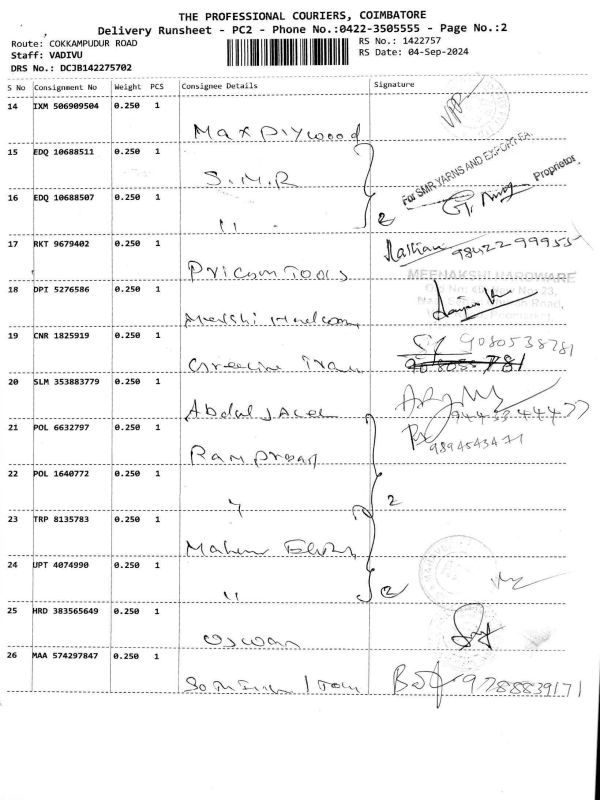 THE PROFESSIONAL COURIERS, COIMBATORE
Delivery Runsheet - PC2 - Phone No.:0422-3505555 - Page No.:2
Route: COKKAMPUDUR ROAD
RS No.: 1422757
Staff: VADIVU
RS Date: 04-Sep-2024
DRS No.: DCJB142275702
S No Consignment No Weight PCS Consignee Details Signature
14 IXM 506909504 0.250 1
Max Plywood
15 EDQ 10688511 0.250 1
S.M.R
For SMR YARNS AND EXPORT
Proprietor
16 EDQ 10688507 0.250 1
" 2
17 RKT 9679402 0.250 1
9842299955
Pricom Tools
MEENAKSHI HARDWARE
18 DPI 5276586 0.250 1
19 CNR 1825919 0.250 1
9080538781
781
20 SLM 353883779 0.250 1
Abdul
9443344477
21 POL 6632797 0.250 1
9894543471
22 POL 1640772 0.250 1
" 2
23 TRP 8135783 0.250 1
24 UPT 4074990 0.250 1
" 2
25 HRD 383565649 0.250 1
Oswan
26 MAA 574297847 0.250 1
9788839171